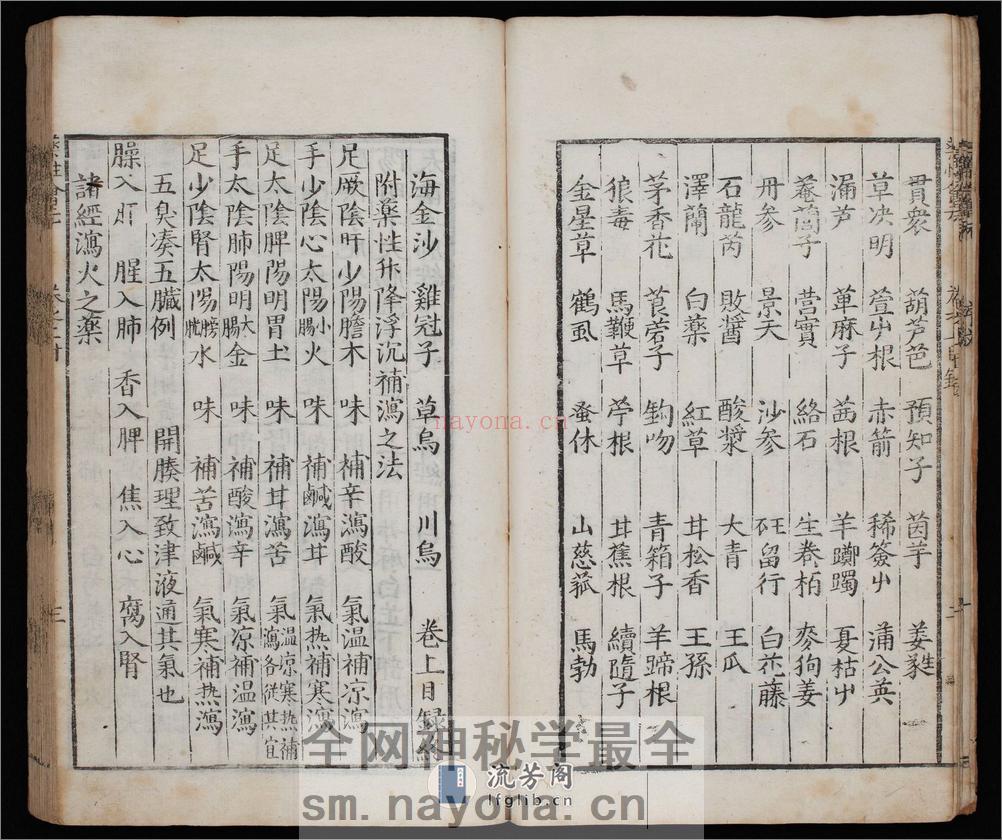 貫衆 葫芦芭 預知子 茵芋 姜𮥼生
草决明 萱屮根 赤箭 稀簽屮 蒲公英
漏芦 萆麻子 茜根 羊躑躅 夏枯屮
菴䕡子 营實 絡石 生卷栢 麥狗姜
丹参 景天 沙参 砡留行 白花藤
石龍芮 敗醬 酸漿 大青 王瓜
澤蘭 白薬 紅草 甘松香 王孫
茅香花 莨菪子 鈎吻 青箱子 羊蹄根
狼毒 馬鞭草 苧根 甘蕉根 續隨子
金星草 鶴虱 蚤休 山慈菰 馬勃
海金沙 雞冠子 草烏 川烏 卷上目録終
附薬性升降浮沉補瀉之法
足厥陰肝少陽膽木 味 補辛瀉酸 氣温補凉瀉
手少陰心太陽小腸火 味 補鹹瀉甘 氣热補寒瀉
足太陰脾陽明胃土 味 補甘瀉苦 氣温凉寒热補瀉各從其宜
手太陰肺陽明大腸金 味 補酸瀉辛 氣凉補温瀉
足少陰腎太陽膀胱水 味 補苦瀉鹹 氣寒補热瀉
五臭凑五臟例 開腠理致津液通其氣也
臊入肝 腥入肺 香入脾 焦入心 腐入腎
諸經瀉火之薬
三
nayona.cn
全网神秘学最全
流芳阁
lfglib.cn
sm.nayona.cn